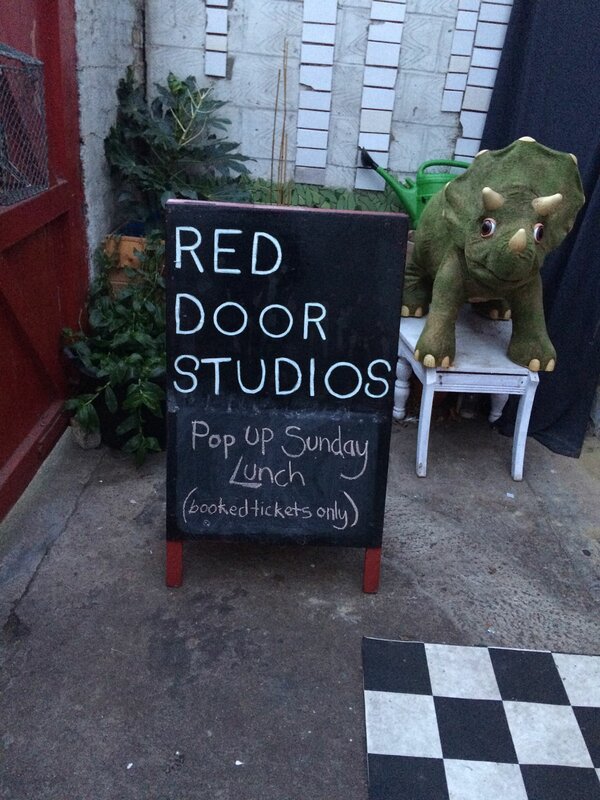 RED
DOOR
STUDIOS
Pop UP Sunday
Lunch
(booked tickets only)